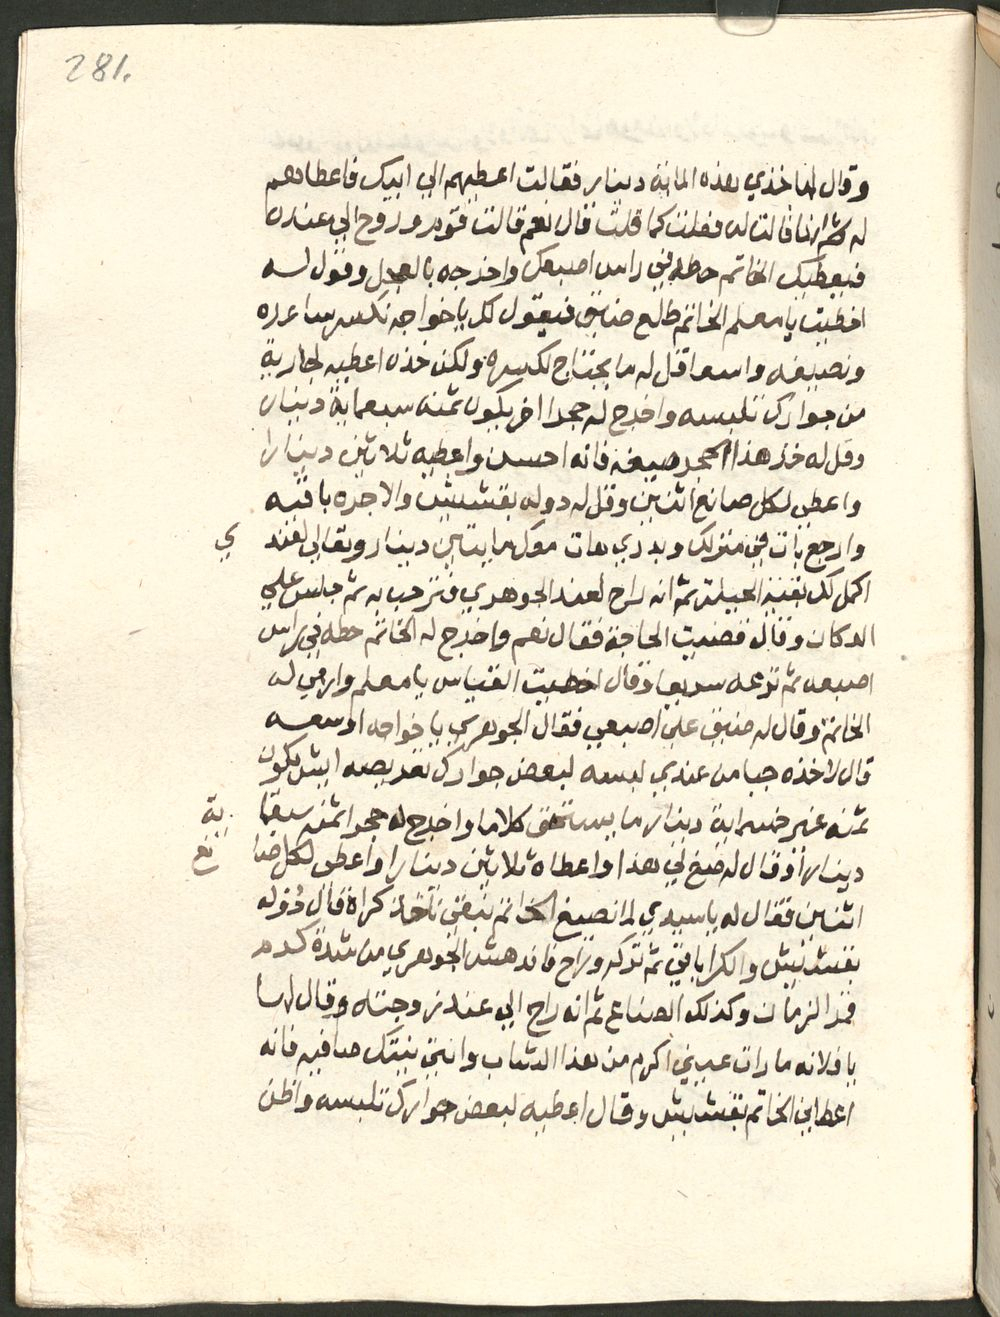 281.
وقال لها خذي هذه الماية دينار فقالت اعطيهم الي ابيك فاعطاهم
له ثم انها قالت له فعلت كما قلت قال نعم قالت فقوم وروح الي عنده
فيعطيك الخاتم حطه في راس اصبعك واخرجه بالعجل وقول له
اخطيت يا معلم الخاتم طالع ضيق فيقول لك يا خواجه نكسره
ونصيغه واسعا قل له ما يحتاج لكسره ولكن خذه اعطيه لجارية
من جوارك تلبسه واخرج له حجرا اخر يكون ثمنه سبعماية دينار
وقل له خذ هذا الحجر صيغه فانه احسن واعطيه ثلاثين دينارا
واعطي لكل صانع اثنين وقل له دوله بقشيش والاجره باقيه
وارجع بات في منزلك وبدري هات معك مايتين دينار وتعالي لعند
ي
اكمل لك بقية الحيله ثم انه راح لعند الجوهري فترحب به ثم جلس علي
الدكان وقال قضيت الحاجة فقال نعم واخرج له الخاتم حطه في راس
اصبعه ثم نزعه سريعا وقال اخطيت القياس يا معلم وارمي له
الخاتم وقال له ضيق علي اصبعي فقال الجوهري يا خواجه اوسعه
قال لا خذه جبا من عندي لبسه لبعض جوارك بعد ايش يكون
ثمنه غير خمسماية دينار ما يستحق كلاما واخرج له حجرا ثمنه سبعما
ية
دينارا وقال له صيغ لي هذا واعطاه ثلاثين دينارا واعطي لكل صا
نع
اثنين فقال له يا سيدي لما نصيغ الخاتم نبقي ناخذ كراه قال دوله
بقشيش والكرا باقي ثم تركه وراح فاندهش الجوهري من شدة كرم
قمر الزمان وكذلك الصناع ثم انه راح الي عند زوجته وقال لها
يا فلانه ما رات عيني اكرم من هذا الشاب وانتي بنتك صافيه فانه
اعطاني الخاتم بقشيش وقال اعطيه لبعض جوارك تلبسه واظن